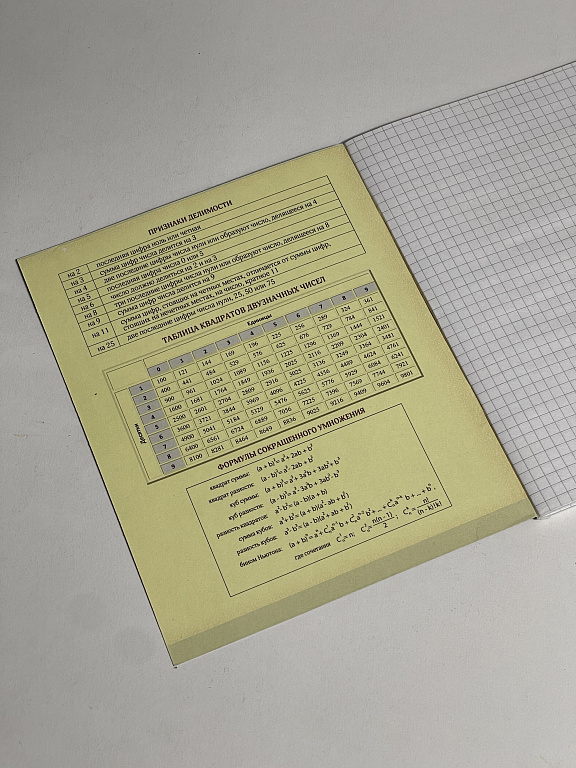 ПРИЗНАКИ ДЕЛИМОСТИ
на 2 последняя цифра ноль или четная
на 3 сумма цифр числа делится на 3
на 4 две последние цифры числа нули или образуют число, делящееся на 4
на 5 последняя цифра числа 0 или 5
на 6 число должно делиться на 2 и на 3
на 8 три последние цифры числа нули или образуют число, делящееся на 8
на 9 сумма цифр числа делится на 9
на 11 сумма цифр, стоящих на четных местах, отличается от суммы цифр,
стоящих на нечетных местах, на число, кратное 11
на 25 две последние цифры числа нули, 25, 50 или 75
ТАБЛИЦА КВАДРАТОВ ДВУЗНАЧНЫХ ЧИСЕЛ
Единицы
0 1 2 3 4 5 6 7 8 9
Десятки
1 100 121 144 169 196 225 256 289 324 361
2 400 441 484 529 576 625 676 729 784 841
3 900 961 1024 1089 1156 1225 1296 1369 1444 1521
4 1600 1681 1764 1849 1936 2025 2116 2209 2304 2401
5 2500 2601 2704 2809 2916 3025 3136 3249 3364 3481
6 3600 3721 3844 3969 4096 4225 4356 4489 4624 4761
7 4900 5041 5184 5329 5476 5625 5776 5929 6084 6241
8 6400 6561 6724 6889 7056 7225 7396 7569 7744 7921
9 8100 8281 8464 8649 8836 9025 9216 9409 9604 9801
ФОРМУЛЫ СОКРАЩЕННОГО УМНОЖЕНИЯ
квадрат суммы: (a + b)² = a² + 2ab + b²
квадрат разности: (a - b)² = a² - 2ab + b²
куб суммы: (a + b)³ = a³ + 3a²b + 3ab² + b³
куб разности: (a - b)³ = a³ - 3a²b + 3ab² - b³
разность квадратов: a² - b² = (a - b)(a + b)
сумма кубов: a³ + b³ = (a + b)(a² - ab + b²)
разность кубов: a³ - b³ = (a - b)(a² + ab + b²)
бином Ньютона: (a + b)ⁿ = aⁿ + C¹ₙaⁿ⁻¹b + C²ₙaⁿ⁻²b² + ... + Cᵏₙaⁿ⁻ᵏbᵏ + ... + bⁿ,
где сочетания C¹ₙ = n; C²ₙ = n(n - 1)/2; Cᵏₙ = n!/(n - k)!k!